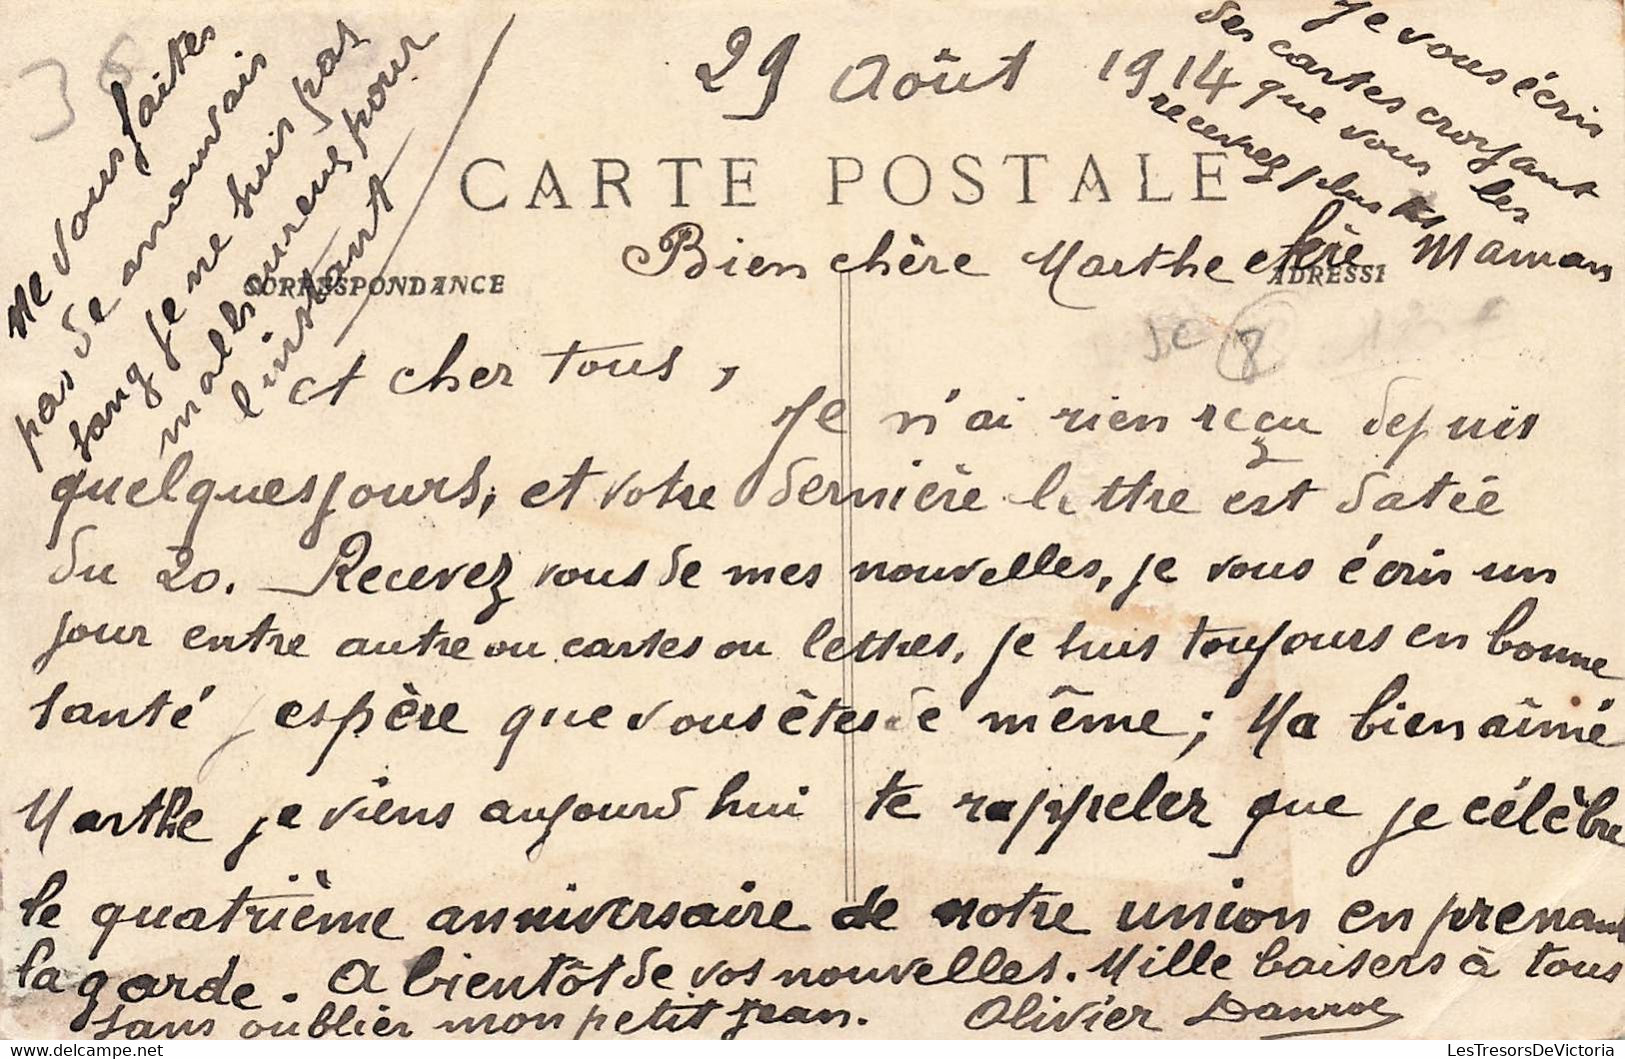 29 Août 1914
CARTE POSTALE
CORRESPONDANCE
ADRESSE
Je vous écris
des cartes croyant
que vous les
recevrez plus
Bien chère Marthe chère Maman
et cher tous,
Je n'ai rien reçu depuis
quelques jours, et votre dernière lettre est datée
du 20. Recevez vous de mes nouvelles, je vous écris un
jour entre autre ou cartes ou lettres, je suis toujours en bonne
santé j espère que vous êtes de même; Ma bien aimé
Marthe je viens aujourd hui te rappeler que je célèbre
le quatrième anniversaire de notre union en prenant
la garde. A bientôt de vos nouvelles. Mille baisers à tous
sans oublier mon petit Jean. Olivier
Me vous faites
pas de mauvais
sang je ne suis pas
malheureux pour
l instant
36
8
LesTresorsDeVictoria